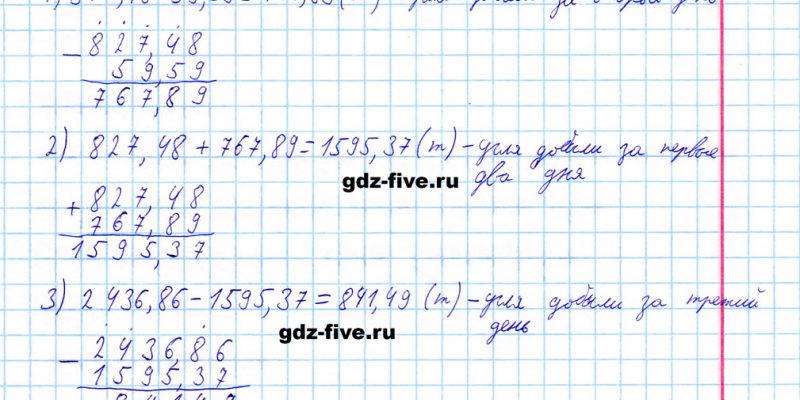 827,48
− 59,59
767,89
2) 827,48 + 767,89 = 1595,37 (т) – угля добыли за первые
два дня
gdz-five.ru
+ 827,48
767,89
1595,37
3) 2436,86 − 1595,37 = 841,49 (т) – угля добыли за третий
день
gdz-five.ru
− 2436,86
1595,37